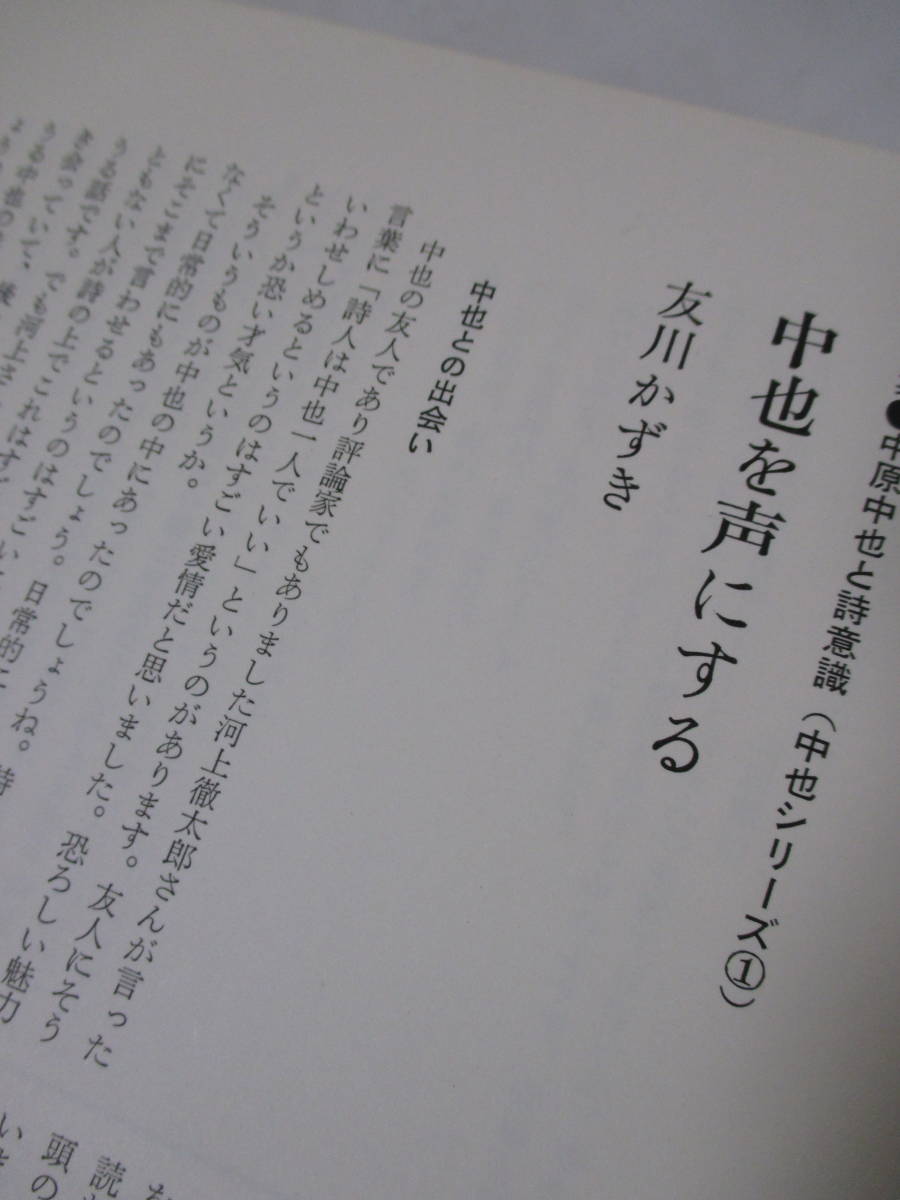 ●中原中也と詩意識（中也シリーズ①）
中也を声にする
友川かずき
中也との出会い
中也の友人であり評論家でもありました河上徹太郎さんが言った
言葉に「詩人は中也一人でいい」というのがあります。友人にそう
いわせしめるというのはすごい愛情だと思いました。恐ろしい魅力
というか恐い才気というか。
そういうものが中也の中にあったのでしょうね。詩
なくて日常的にもあったのでしょう。日常的に
にそこまで言わせるというのはすごい
ともない人が詩の上でこれはすご
うる話です。でも河上さ
き会っていて、
うる中也の
読
頭の